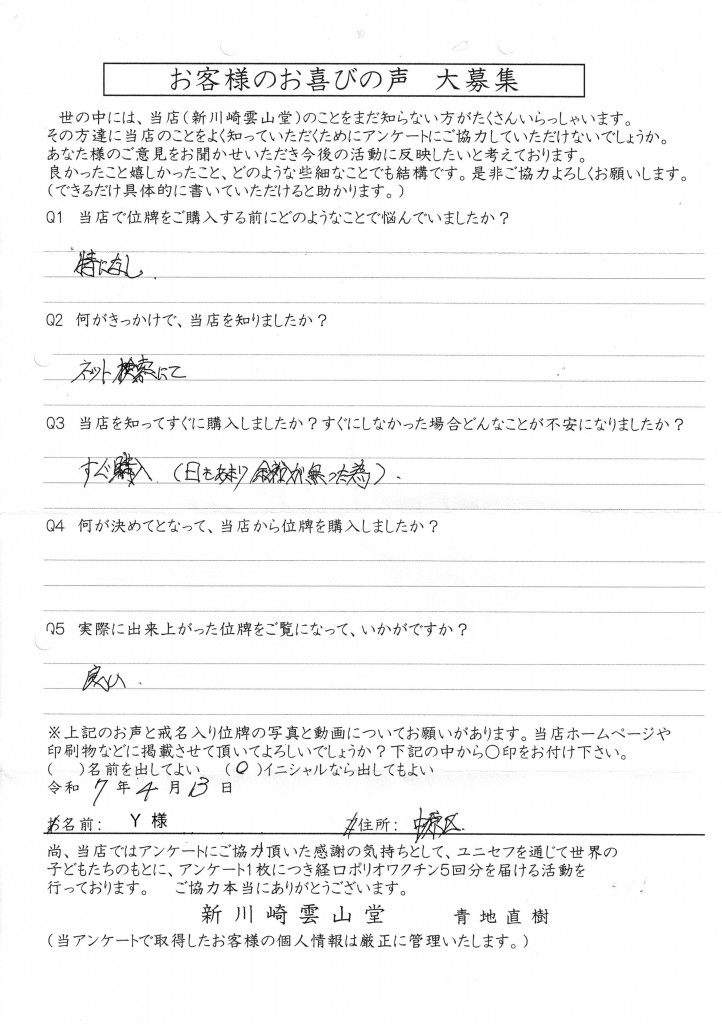 お客様のお喜びの声　大募集
世の中には、当店(新川崎雲山堂)のことをまだ知らない方がたくさんいらっしゃいます。
その方達に当店のことをよく知っていただくためにアンケートにご協力していただけないでしょうか。
あなた様のご意見をお聞かせいただき今後の活動に反映したいと考えております。
良かったこと嬉しかったこと、どのような些細なことでも結構です。是非ご協力よろしくお願いします。
(できるだけ具体的に書いていただけると助かります。)
Q1　当店で位牌をご購入する前にどのようなことで悩んでいましたか？
特になし.
Q2　何がきっかけで、当店を知りましたか？
ネット検索にて
Q3　当店を知ってすぐに購入しましたか？すぐにしなかった場合どんなことが不安になりましたか？
すぐ購入 (日もあまり余裕が無った為).
Q4　何が決めてとなって、当店から位牌を購入しましたか？
Q5　実際に出来上がった位牌をご覧になって、いかがですか？
良い.
※上記のお声と戒名入り位牌の写真と動画についてお願いがあります。当店ホームページや
印刷物などに掲載させて頂いてよろしいでしょうか？下記の中から〇印をお付け下さい。
(　)名前を出してよい　(〇)イニシャルなら出してもよい
令和 7 年 4 月 13 日
お名前：　Y 様　ご住所：　中原区
尚、当店ではアンケートにご協力頂いた感謝の気持ちとして、ユニセフを通じて世界の
子どもたちのもとに、アンケート1枚につき経口ポリオワクチン5回分を届ける活動を
行っております。　ご協力本当にありがとうございます。
新川崎雲山堂　青地直樹
(当アンケートで取得したお客様の個人情報は厳正に管理いたします。)